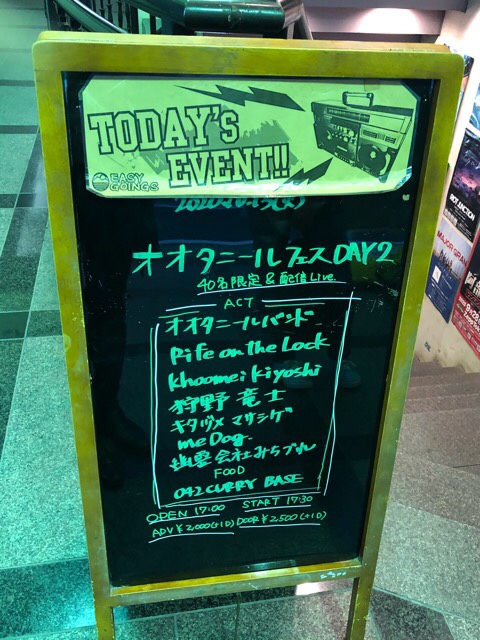 TODAY'S
EVENT!!
EASY
GOINGS
オオタニールフェスDAY2
40名限定&配信Live
ACT
オオタニールバンド
Rife on the Lock
Khoomei kiyoshi
狩野 竜士
キタヅメ マサシゲ
meDog.
幽霊会社みちづれ
FOOD
042CURRY BASE
OPEN 17:00 START 17:30
ADV ¥2,000(+1D) DOOR ¥2,500(+1D)
HOT JUNCTION